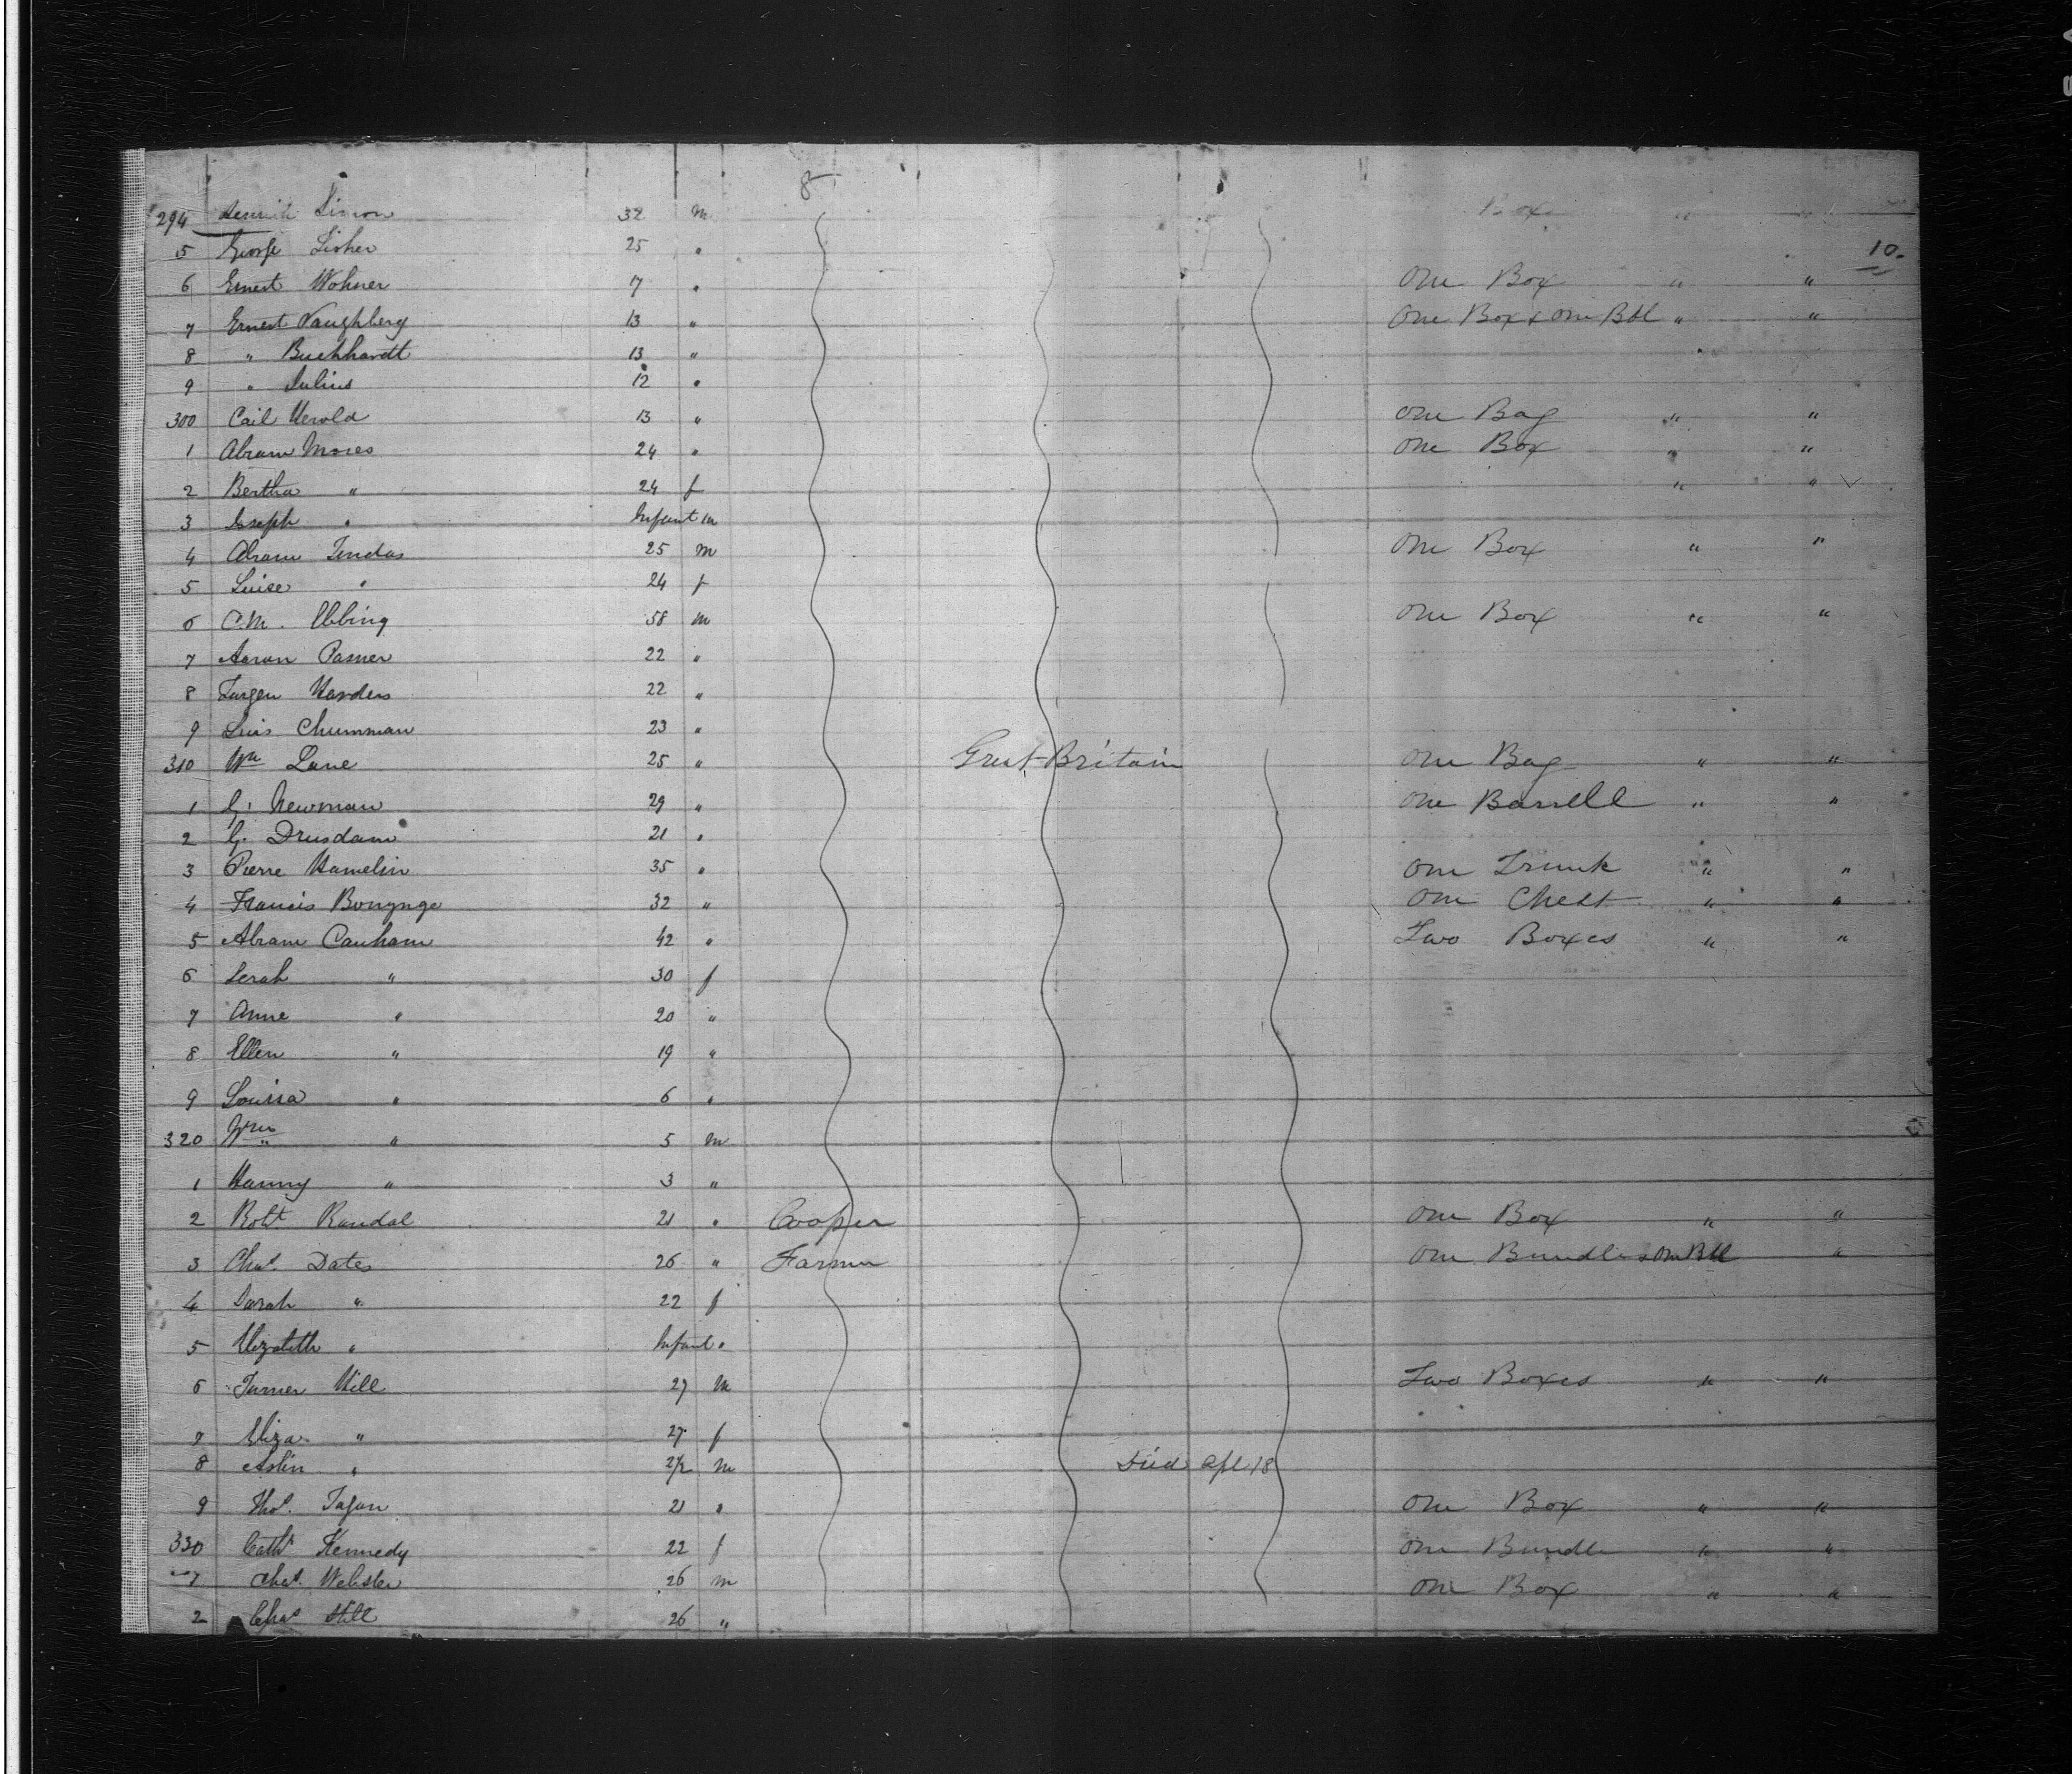 8
294 Heinrich Simon 32 m Box " "
5 George Fisher 25 " 10.
6 Ernest Wohner 7 " One Box " "
7 Ernest Vaughberg 13 " One Box & One Bbl " "
8 " Buchhardt 13 "
9 " Julius 12 "
300 Carl Herold 13 " One Bag " "
1 Abram Moses 24 " One Box " "
2 Bertha " 24 f " "
3 Joseph " Infant m
4 Abram Tendas 25 m One Box " "
5 Luise " 24 f
6 C.M. Ubbing 58 m One Box " "
7 Aaron Pasner 22 "
8 Jurgen Harders 22 "
9 Luis Chumman 23 "
310 Wm Lane 25 " Great Britain One Bag " "
1 G. Newman 29 " One Barrell " "
2 G. Drusdam 21 "
3 Pierre Hamelin 35 " One Trunk " "
4 Francis Bonynge 32 " One Chest " "
5 Abram Canham 42 " Two Boxes " "
6 Serah " 30 f
7 Anne " 20 "
8 Ellen " 19 "
9 Louisa " 6 "
320 Wm " 5 m
1 Hanny " 3 "
2 Robt Randal 21 " Cooper One Box " "
3 Chas. Dates 26 " Farmer One Bundle & One Bbl "
4 Sarah " 22 f
5 Elizabeth " Infant "
6 Turner Hill 27 m Two Boxes " "
7 Eliza " 27 f
8 Aslin " 2/2 m Died Apl 18
9 Thos. 21 " One Box " "
330 Cath Kennedy 22 f One Bundle " "
1 Chas. Webster 26 m One Box " "
2 Chas Hill 26 "